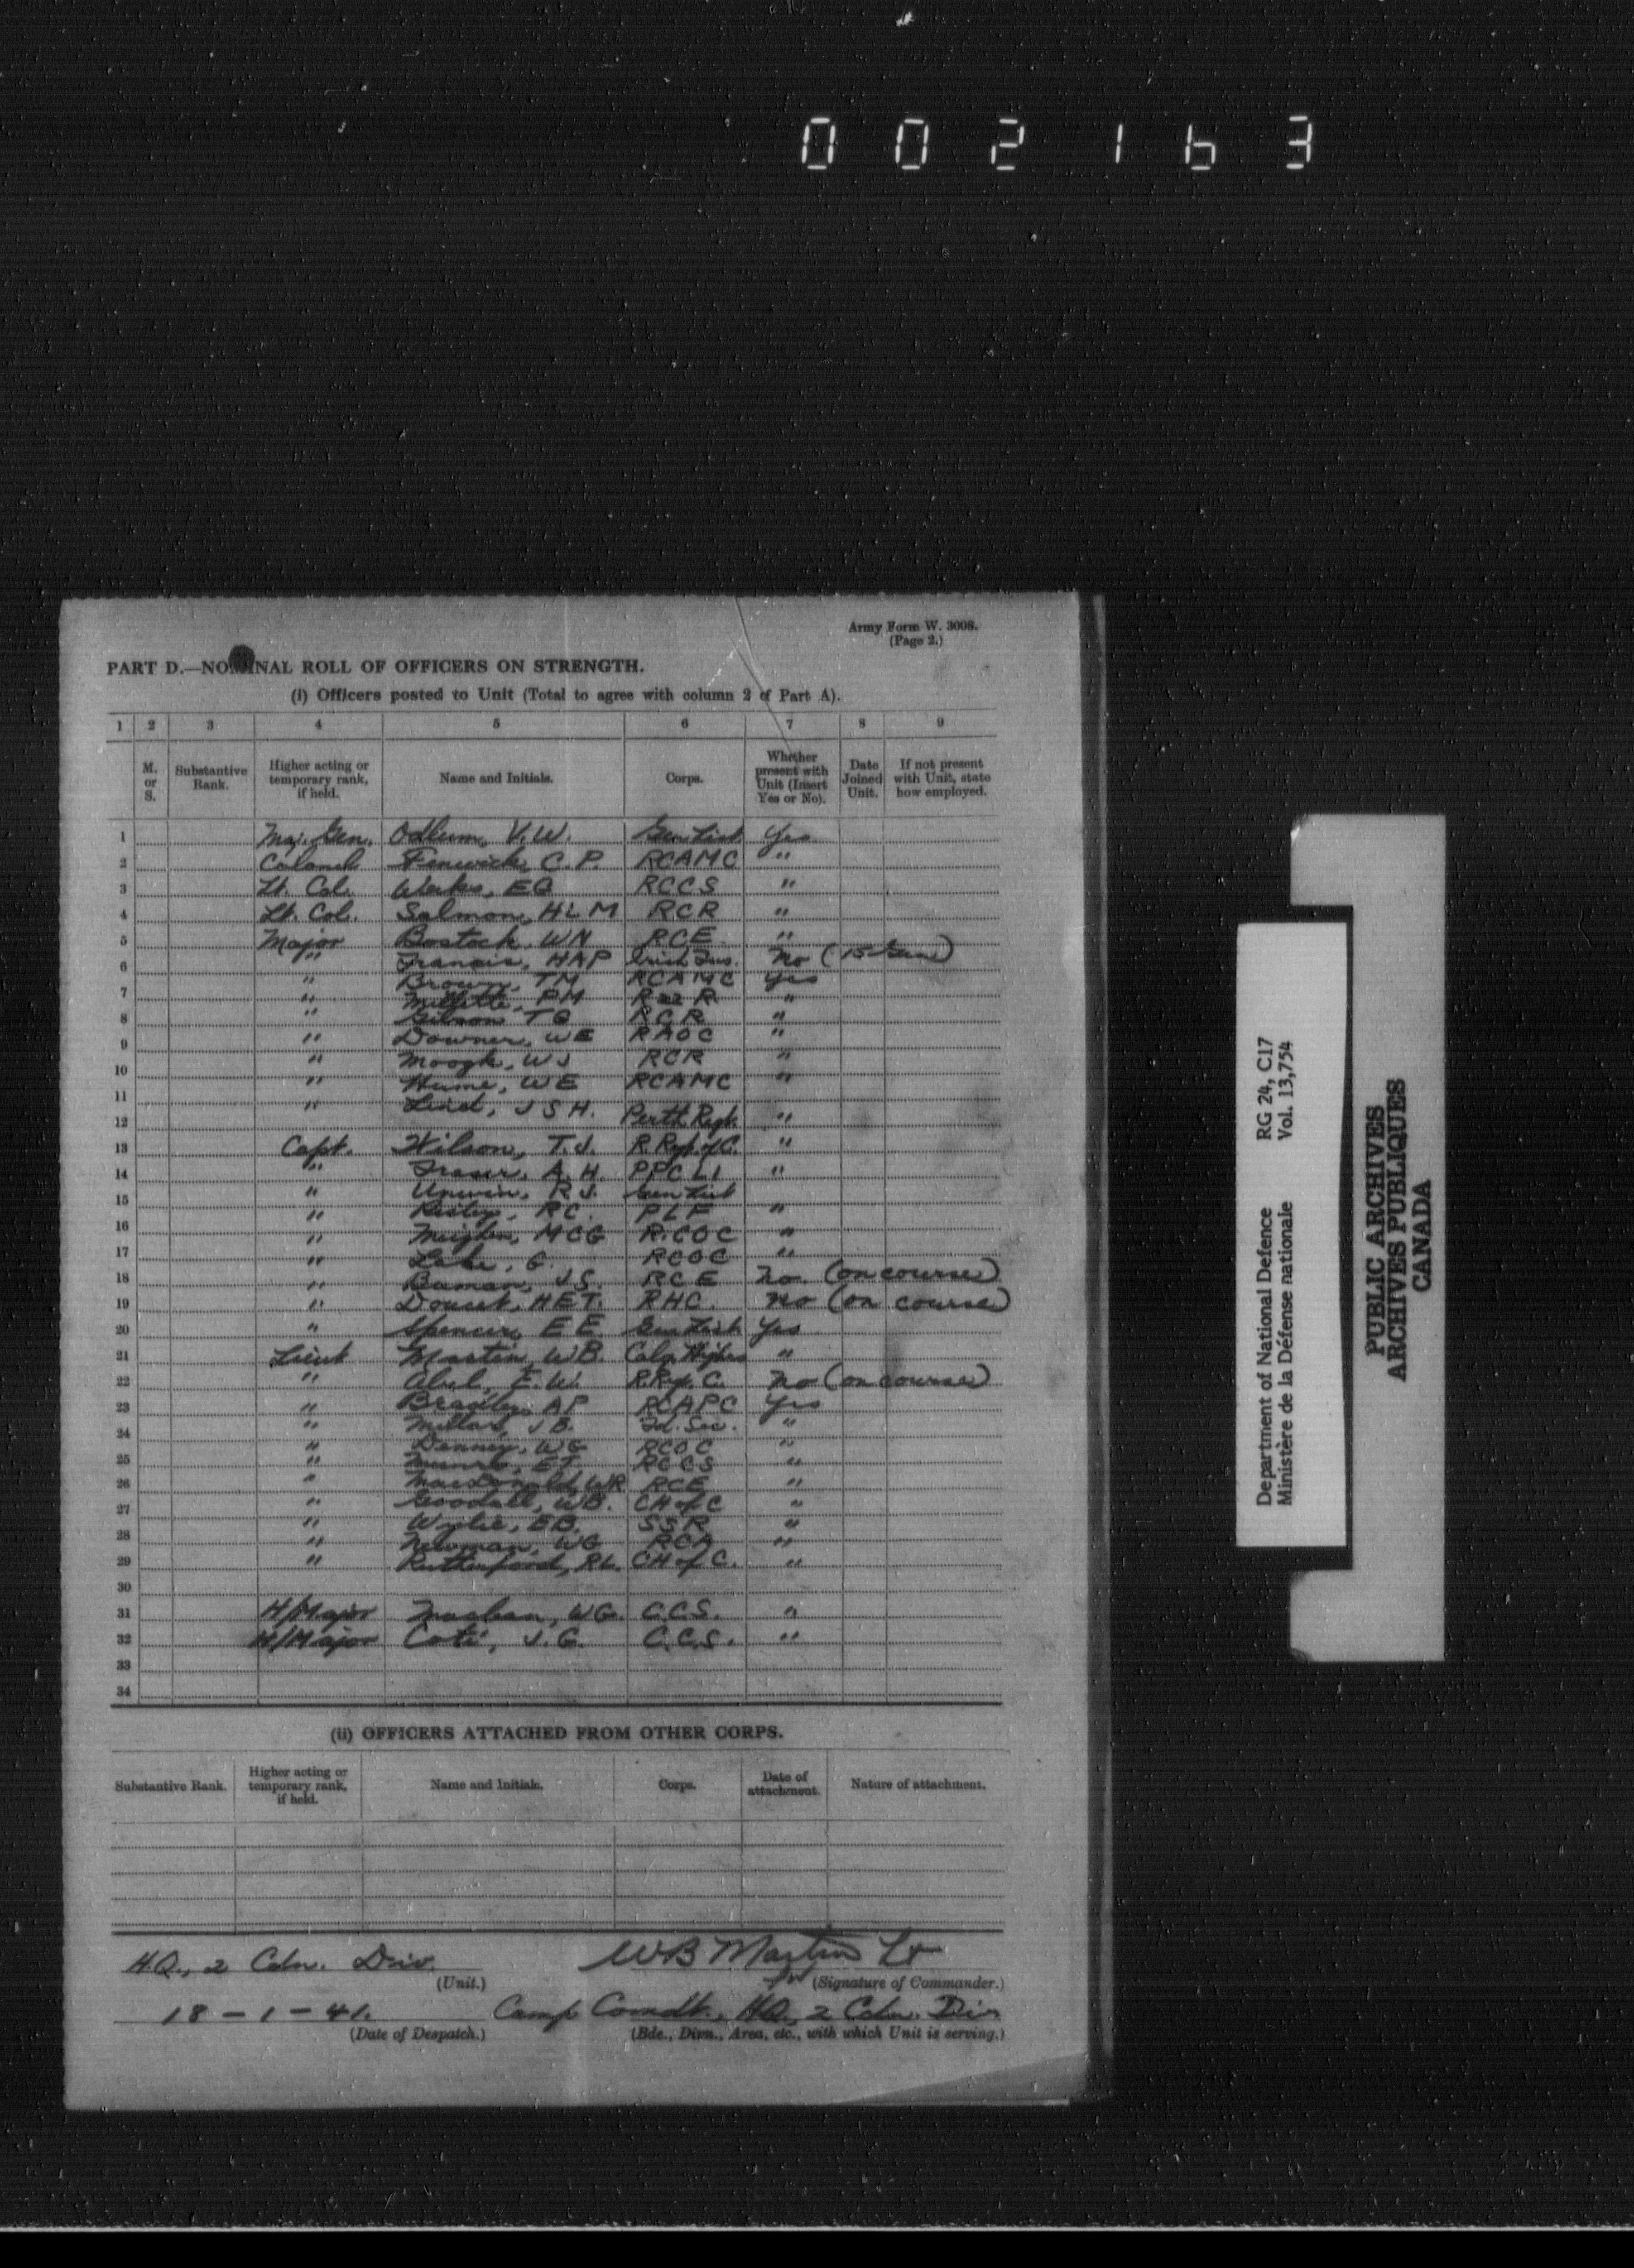 002163
Army Form W. 3008.
(Page 2.)
PART D.—NOMINAL ROLL OF OFFICERS ON STRENGTH.
(i) Officers posted to Unit (Total to agree with column 2 of Part A).
1 2 3 4 5 6 7 8 9
M. or S. Substantive Rank. Higher acting or temporary rank, if held. Name and Initials. Corps. Whether present with Unit (Insert Yes or No). Date Joined Unit. If not present with Unit, state how employed.
1 Maj. Gen. Odlum, V.W. Gen List Yes
2 Colonel Fenwick, C.P. RCAMC "
3 Lt. Col. Weeks, EG RCCS "
4 Lt. Col. Salmon, HLM RCR "
5 Major Bostock, WN RCE "
6 " Francis, HAP Irish Fus. No (
7 " Brown, TM RCAMC Yes
" Millette, PM R 22 R "
8 " Gibson TG RCR "
9 " Downer, WE RAOC "
10 " Moogk, WJ RCR "
11 " Hume, WE RCAMC "
12 " Lind, JSH. Perth Regt. "
13 Capt. Wilson, T.J. R. Regt. of C. "
14 " Fraser, A.H. PPCLI "
15 " Unwin, R.J. Gen List
16 " RC. PLF "
" MCG RCOC "
17 " Lake, G. RCOC "
18 " J.S. RCE No (on course)
19 " Doucet, HET. RHC. No (on course)
20 " Spencer, EE Gen List Yes
21 Lieut Martin, WB. Calg. Highrs "
22 " Abel, E.W. R. Regt. C. No (on course)
23 " Brasley, AP RCAPC Yes
24 " Millar, J.B. Fd. Sec. "
25 " Denney, WG RCOC "
" Munro, ET. RCCS "
26 " MacDonald, WR RCE "
27 " Goodall, WB. CH of C "
28 " Wylie, EB. SSR "
" Newman, WG RCA "
29 " Rutherford, RL. CH of C. "
30
31 H/Major Maclean, WG. C.C.S. "
32 H/Major Coté, J.G. C.C.S. "
33
34
(ii) OFFICERS ATTACHED FROM OTHER CORPS.
Substantive Rank. Higher acting or temporary rank, if held. Name and Initials. Corps. Date of attachment. Nature of attachment.
H.Q., 2 Cdn. Div. WB Martin Lt
(Unit.) for (Signature of Commander.)
18 – 1 – 41. Camp Comdt., HQ., 2 Cdn. Div
(Date of Despatch.) (Bde., Divn., Area, etc., with which Unit is serving.)
Department of National Defence RG 24, C17
Ministère de la Défense nationale Vol. 13,754
PUBLIC ARCHIVES
ARCHIVES PUBLIQUES
CANADA